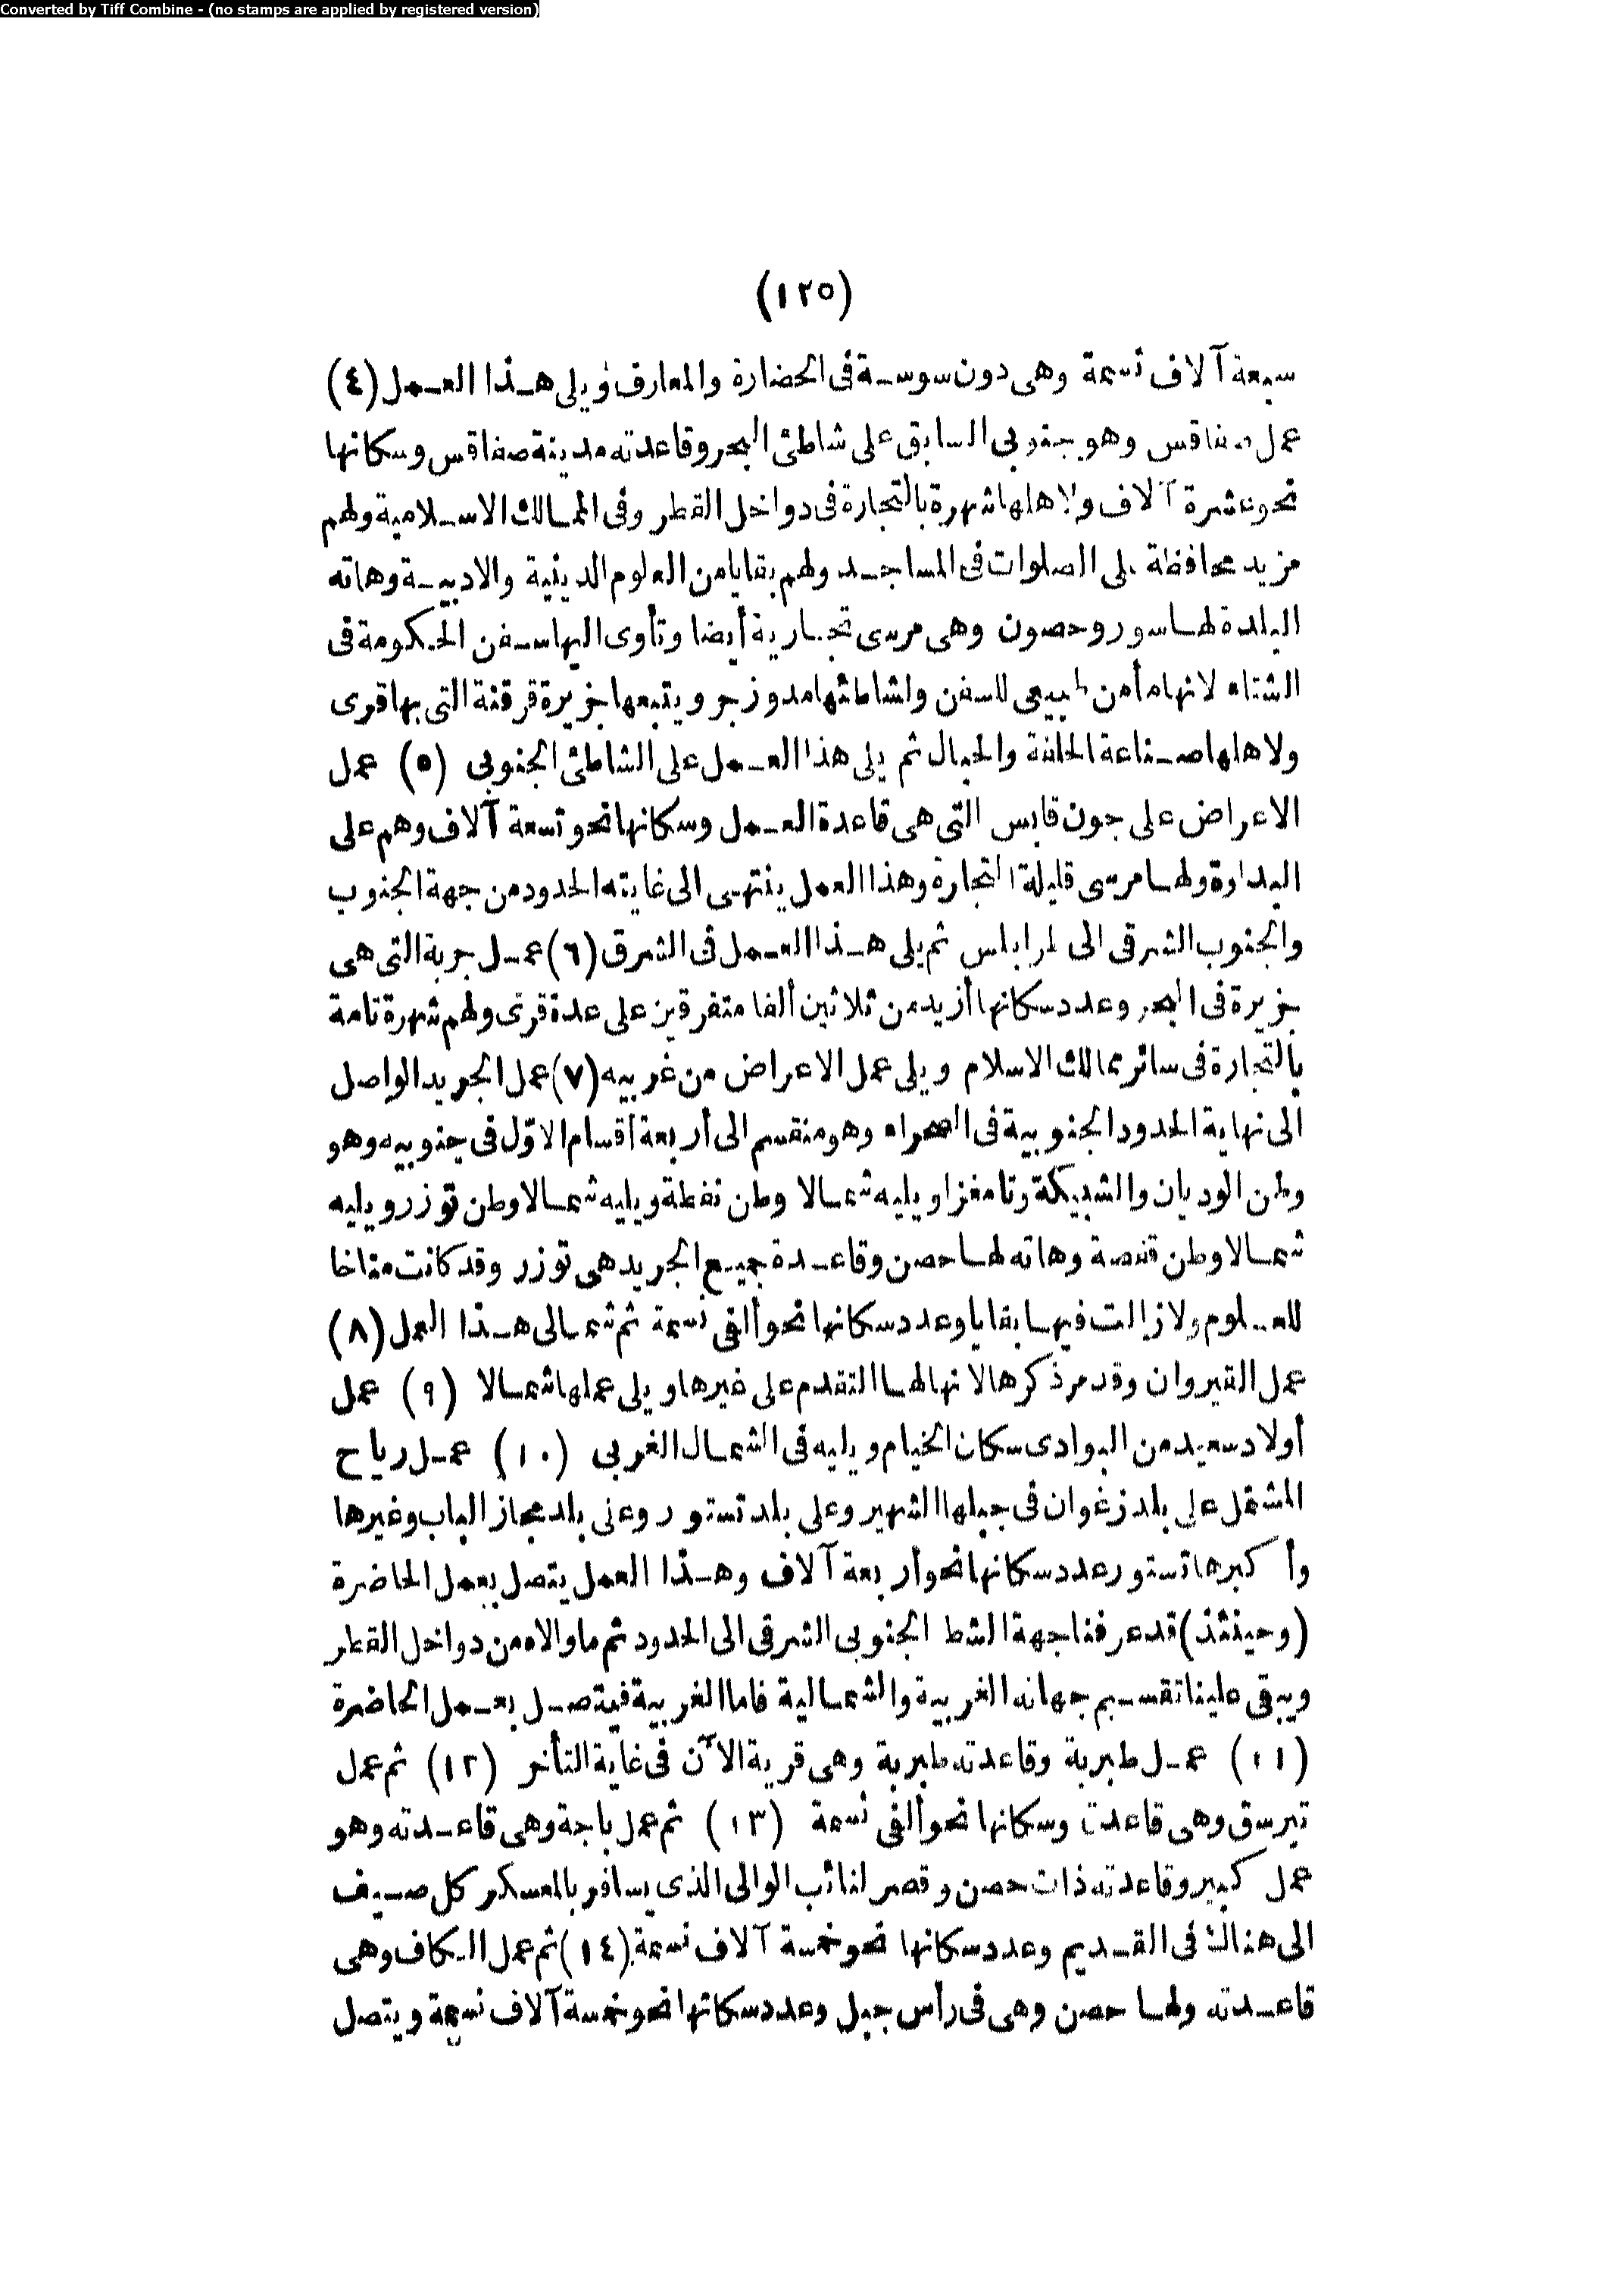 Converted by Tiff Combine - (no stamps are applied by registered version)
(١٢٥)
سبعة آلاف نسمة وهى دون سوسة فى الحضارة والمعارف ويلى هذا العمل (٤)
عمل صفاقس وهو جنوبى السابق على شاطئ البحر وقاعدته مدينة صفاقس وسكانها
نحو عشرة آلاف ولاهلها شهرة بالتجارة فى دواخل القطر وفى الممالك الاسلامية ولهم
مزيد محافظة على الصلوات فى المساجد ولهم بقايا من العلوم الدينية والادبية وهاته
البلدة لها سور وحصون وهى مرسى تجارية أيضا وتأوى اليها سفن الحكومة فى
الشتاء لانها مأمن طبيعى للسفن ولشاطئها مد وزجر ويتبعها جزيرة قرقنة التى بها قرى
ولاهلها صناعة الحلفة والحبال ثم يلى هذا العمل على الشاطئ الجنوبى (٥) عمل
الاعراض على جون قابس التى هى قاعدة العمل وسكانها نحو تسعة آلاف وهم على
البداوة ولها مرسى قليلة التجارة وهذا العمل ينتهى الى غايته الحدود من جهة الجنوب
والجنوب الشرقى الى طرابلس ثم يلى هذا العمل فى الشرق (٦) عمل جربة التى هى
جزيرة فى البحر وعدد سكانها أزيد من ثلاثين ألفا متفرقين على عدة قرى ولهم شهرة تامة
بالتجارة فى سائر ممالك الاسلام ويلى عمل الاعراض من غربيه (٧) عمل الجريد الواصل
الى نهاية الحدود الجنوبية فى الصحراء وهو منقسم الى أربعة أقسام الاوّل فى جنوبيه وهو
وطن الوديان والشبيكة وتامغزا ويليه شمالا وطن نفطة ويليه شمالا وطن توزر ويليه
شمالا وطن قفصة وهاته لها حصن وقاعدة جميع الجريد هى توزر وقد كانت مناخا
للعلوم ولا زالت فيها بقايا وعدد سكانها نحو ألفى نسمة ثم شمالى هذا العمل (٨)
عمل القيروان وقد مر ذكرها لانها لها التقدم على غيرها ويلى عملها شمالا (٩) عمل
أولاد سعيد من البوادى سكان الخيام ويليه فى الشمال الغربى (١٠) عمل رياح
المشتمل على بلد زغوان فى جبلها الشهير وعلى بلد تستور وعلى بلد مجاز الباب وغيرها
وأكبرها تستور عدد سكانها نحو أربعة آلاف وهذا العمل يتصل بعمل الحاضرة
(وحينئذ) قد عرفنا جهة الشط الجنوبى الشرقى الى الحدود ثم ما والاه من دواخل القطر
ويبقى علينا تقسيم جهاته الغربية والشمالية فاما الغربية فيتصل بعمل الحاضرة
(١١) عمل طبربة وقاعدته طبربة وهى قرية الآن فى غاية التأخر (١٢) ثم عمل
تبرسق وهى قاعدته وسكانها نحو ألفى نسمة (١٣) ثم عمل باجة وهى قاعدته وهو
عمل كبير وقاعدته ذات حصن وقصر لنائب الوالى الذى يسافر بالعسكر كل صيف
الى هنالك فى القديم وعدد سكانها نحو خمسة آلاف نسمة (١٤) ثم عمل الكاف وهى
قاعدته ولها حصن وهى فى رأس جبل وعدد سكانها نحو خمسة آلاف نسمة ويتصل